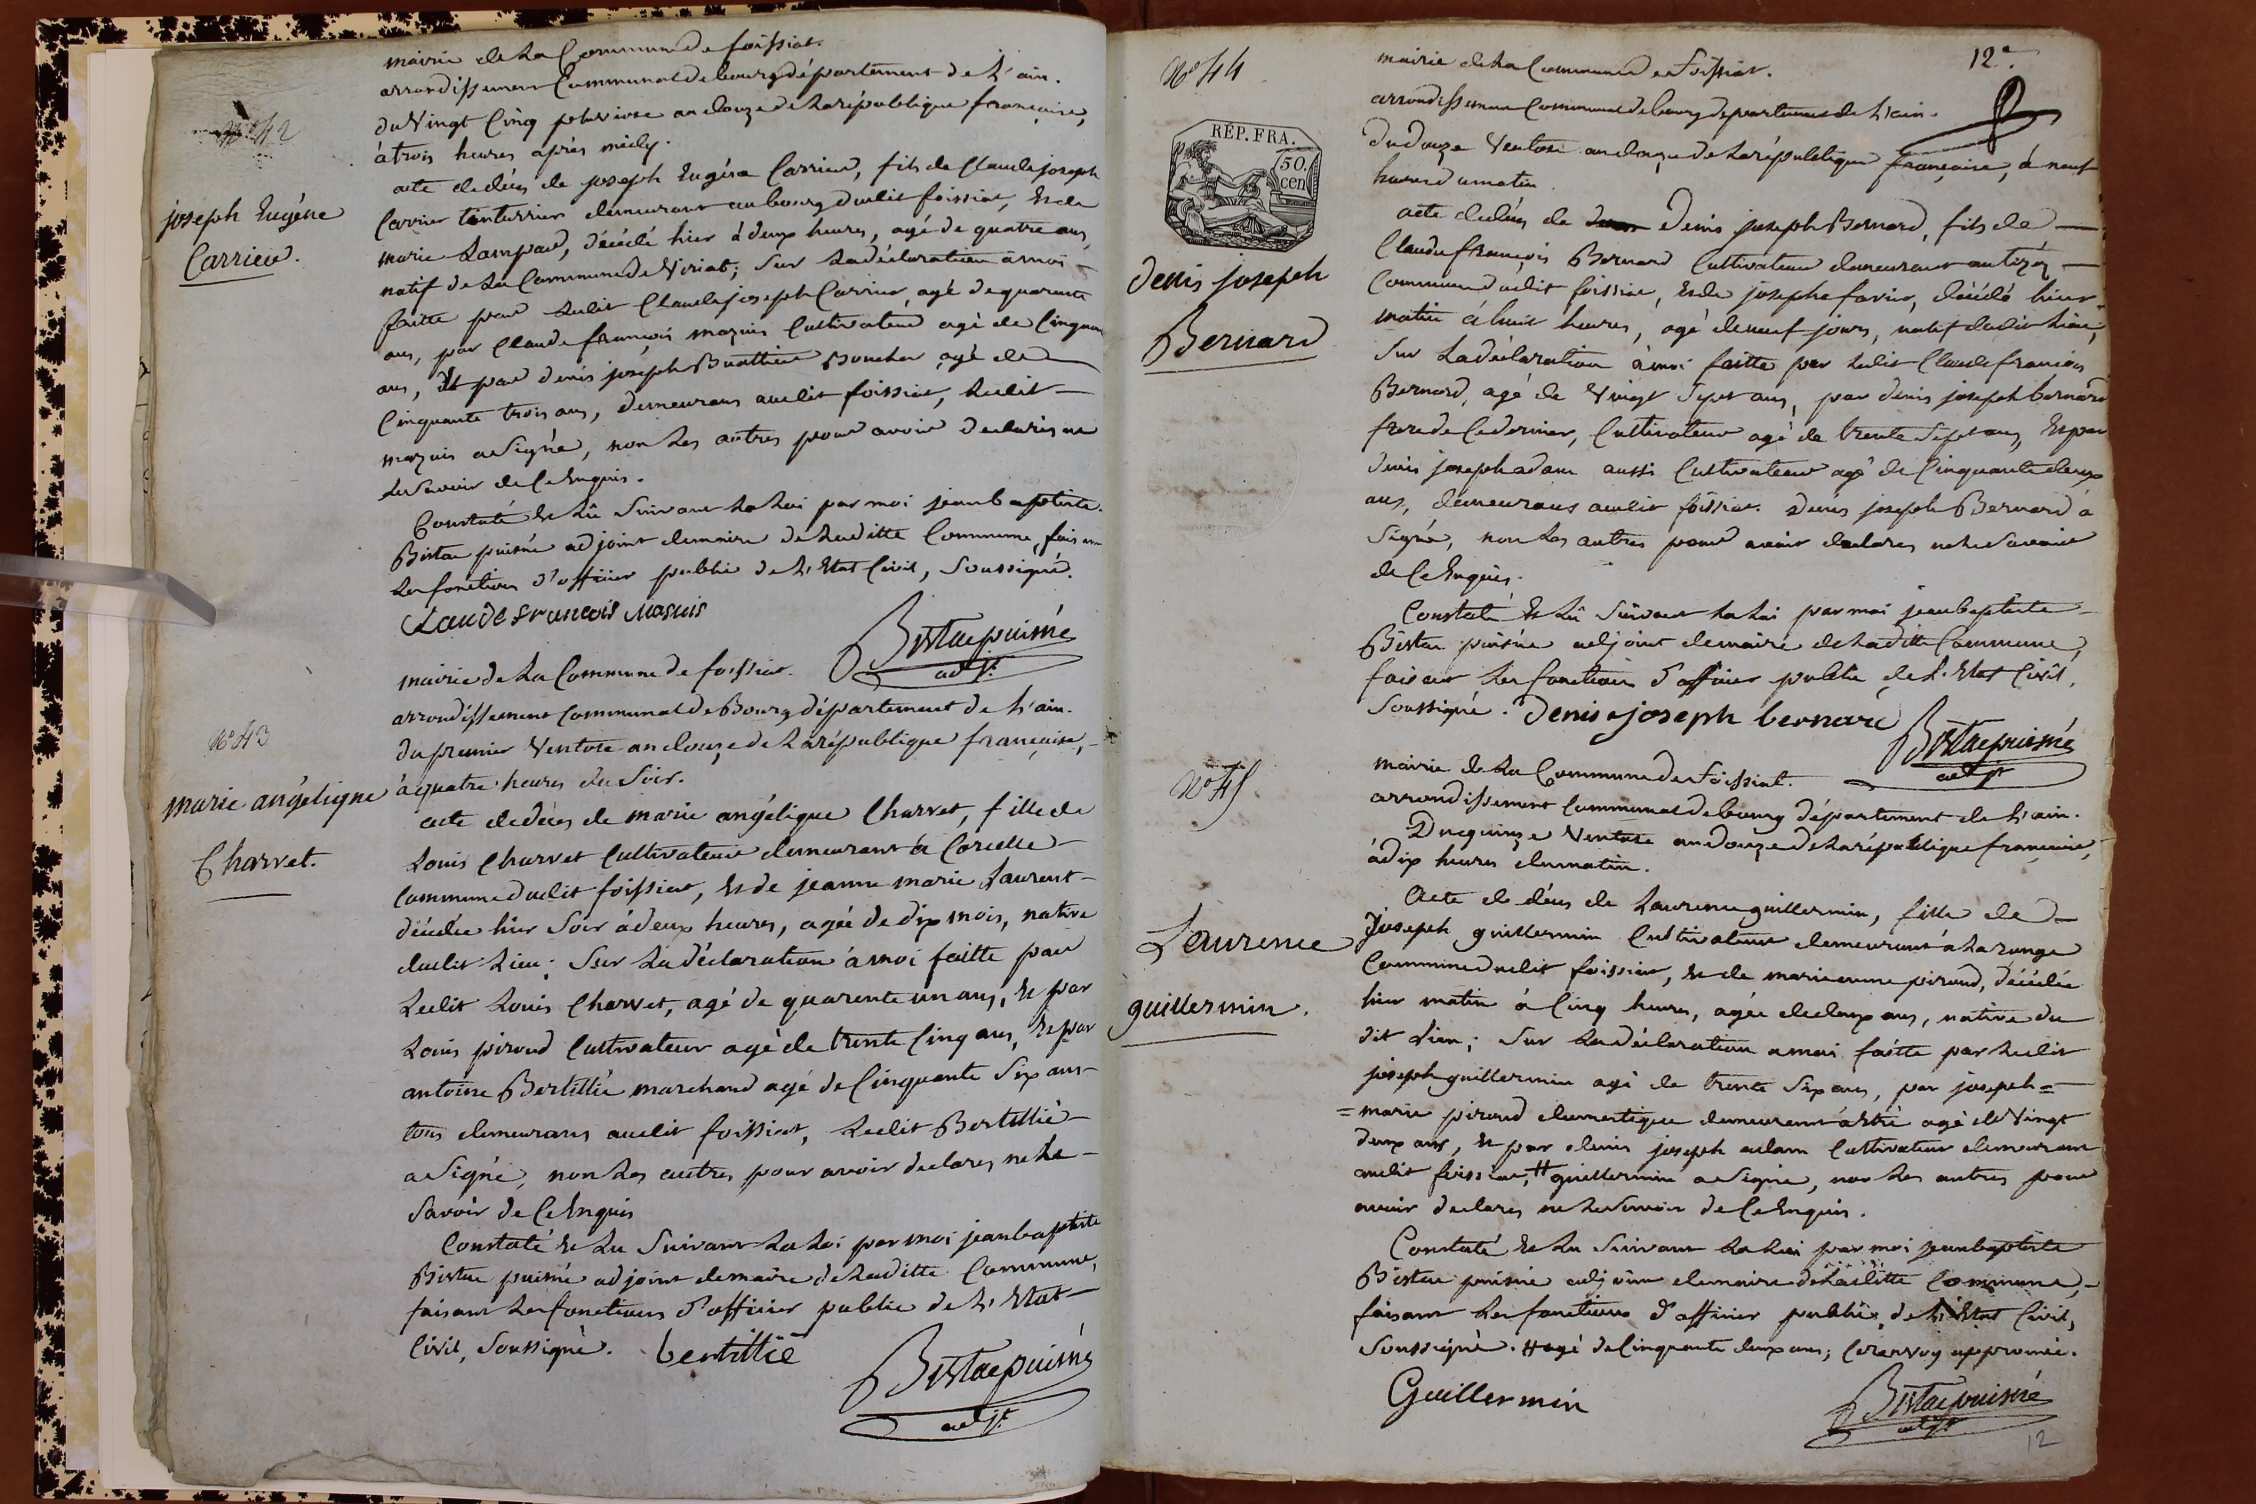 mairie de La Commune de foissiat.
arrondissement Communal de bourg département de L'ain.
du Vingt Cinq pluviose an douze de La république française,
à trois heures après midy.
N° 42
joseph Eugéne
Carrier.
acte de décès de joseph Eugéne Carrier, fils de Claude joseph
Carrier teinturier demeurant au bourg dudit foissiat, Et de
marie Lampad, décédé hier à deux heures, agé de quatre ans,
natif de La Commune de Viriat; Sur La déclaration à moi
faitte par Ledit Claude joseph Carrier, agé de quarente
ans, par Claude françois mazuis Cultivateur agé de Cinquante
ans, Et par denis joseph Buathier Boucher agé de
Cinquante trois ans, demeurans audit foissiat, Ledit
mazuis a Signé, non Les autres pour avoir declarés ne
Le Savoir de Ce Enquis.
Constaté Et Lû Suivant La Loi par moi jean baptiste
Bistac puisné adjoint de maire de Laditte Commune, faisant
Les fonctions d'officier public de L'Etat Civil, Soussigné.
Claude francois Masuis
Bistac puisné
adjt
N° 43
marie angélique
Charvet.
mairie de La Commune de foissiat.
arrondissement Communal de Bourg département de L'ain.
du premier Ventose an douze de La république française,
à quatre heures du Soir.
acte de décès de marie angélique Charvet, fille de
Louis Charvet Cultivateur demeurant à Corcelle
Commune dudit foissiat, Et de jeanne marie Laurent
décédée hier Soir à deux heures, agée de dix mois, native
dudit Lieu; Sur La déclaration à moi faitte par
Ledit Louis Charvet, agé de quarente un ans, Et par
Louis piroud Cultivateur agé de trente Cinq ans, Et par
antoine Bertillié marchand agé de Cinquante Six ans
tous demeurans audit foissiat, Ledit Bertillié
a Signé, non Les autres pour avoir declarés ne Le
Savoir de Ce Enquis
Constaté Et Lu Suivant La Loi par moi jean baptiste
Bistac puisné adjoint de maire de Laditte Commune,
faisant Les fonctions d'officier public de L'Etat
Civil, Soussigné. bertillié
Bistac puisné
adjt
12e
N° 44
RÉP. FRA.
50.
cen
denis joseph
Bernard
mairie de La Commune de Foissiat.
arrondissement Communal de bourg departement de L'ain.
du douze Ventose an douze de La république française, à neuf
heures du matin.
acte de décès de denis joseph Bernard, fils de
Claude françois Bernard Cultivateur demeurant au
Commune dudit foissiat, Et de josephe favier, décédé hier
matin à huit heures, agé de neuf jours, natif dudit Lieu,
Sur La déclaration à moi faitte par Ledit Claude françois
Bernard, agé de Vingt Sept ans, par denis joseph bernard
frere de Ce dernier, Cultivateur agé de trente Sept ans, Et par
denis joseph adam aussi Cultivateur agé de Cinquante deux
ans, demeurans audit foissiat. Denis joseph Bernard a
Signé, non Les autres pour avoir declarés ne Le Savoir
de Ce Enquis.
Constaté Et Lû Suivant La Loi par moi jean baptiste
Bistac puisné adjoint de maire de Laditte Commune,
faisant Les fonctions d'officier public de L'Etat Civil,
Soussigné. Denis joseph bernard
Bistac puisné
adjt
N° 45
Laurence
guillermin.
mairie de La Commune de Foissiat.
arrondissement Communal de bourg département de L'ain.
Du quinze Ventose an douze de La république française,
à dix heures du matin.
Acte de décès de Laurence guillermin, fille de
Joseph guillermin Cultivateur demeurant à La range
Commune dudit foissiat, Et de marie anne piroud, décédée
hier matin à Cinq heures, agée de deux ans, native du
dit Lieu; Sur La déclaration a moi faitte par Ledit
joseph guillermin agé de trente Six ans, par joseph =
= marie piroud domestique demeurant à agé de Vingt
deux ans, Et par denis joseph adam Cultivateur demeurant
audit foissiat, # guillermin a Signé, non Les autres pour
avoir declarés ne Le Savoir de Ce Enquis.
Constaté Et Lu Suivant La Loi par moi jean baptiste
Bistac puisné adjoint de maire de Laditte Commune,
faisant Les fonctions d'officier public de L'Etat Civil,
Soussigné. # agé de Cinquante deux ans; Ce renvoy approuvé.
Guillermin
Bistac puisné
adjt
12